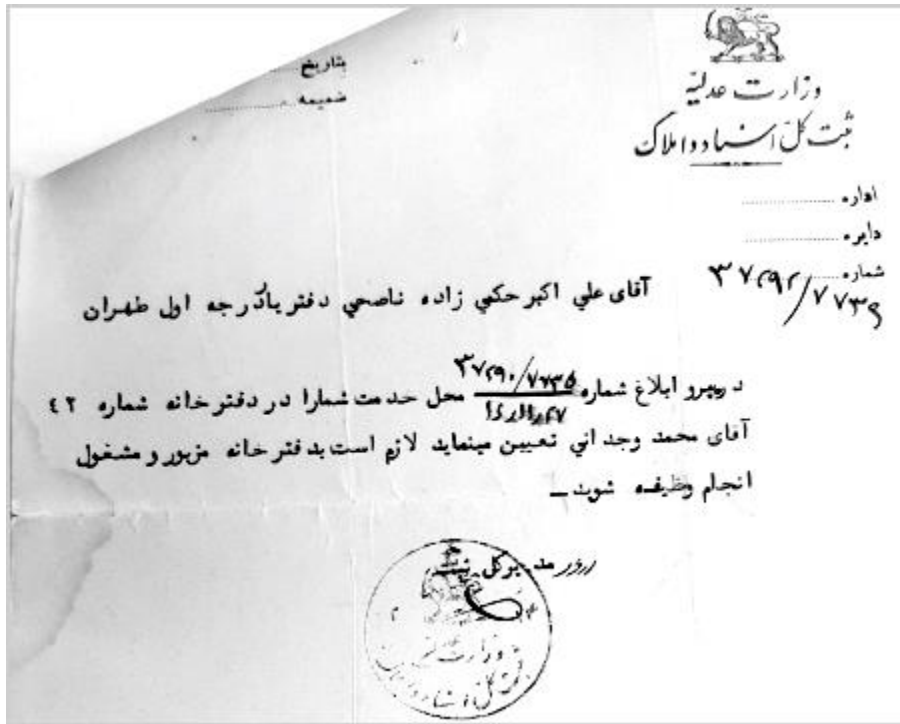 وزارت عدلیّه
ثبت کلّ اسناد و املاک
بتاریخ
ضمیمه
اداره
دایره
شماره ۳۷۲۹۲/۷۷۳۹
آقای علي اکبر حکمي زاده ناصحي دفتریار درجه اول طهران
درپیرو ابلاغ شماره ۳۷۲۹۰/۷۷۳۵ محل خدمت شمارا در دفترخانه شماره ٤٢
آقای محمد وجداني تعیین مینماید لازم است بدفترخانه مزبور و مشغول
انجام وظیفه شوید ــ
مدیرکل ثبت
وزارت
ثبت کلّ اسناد و املاک